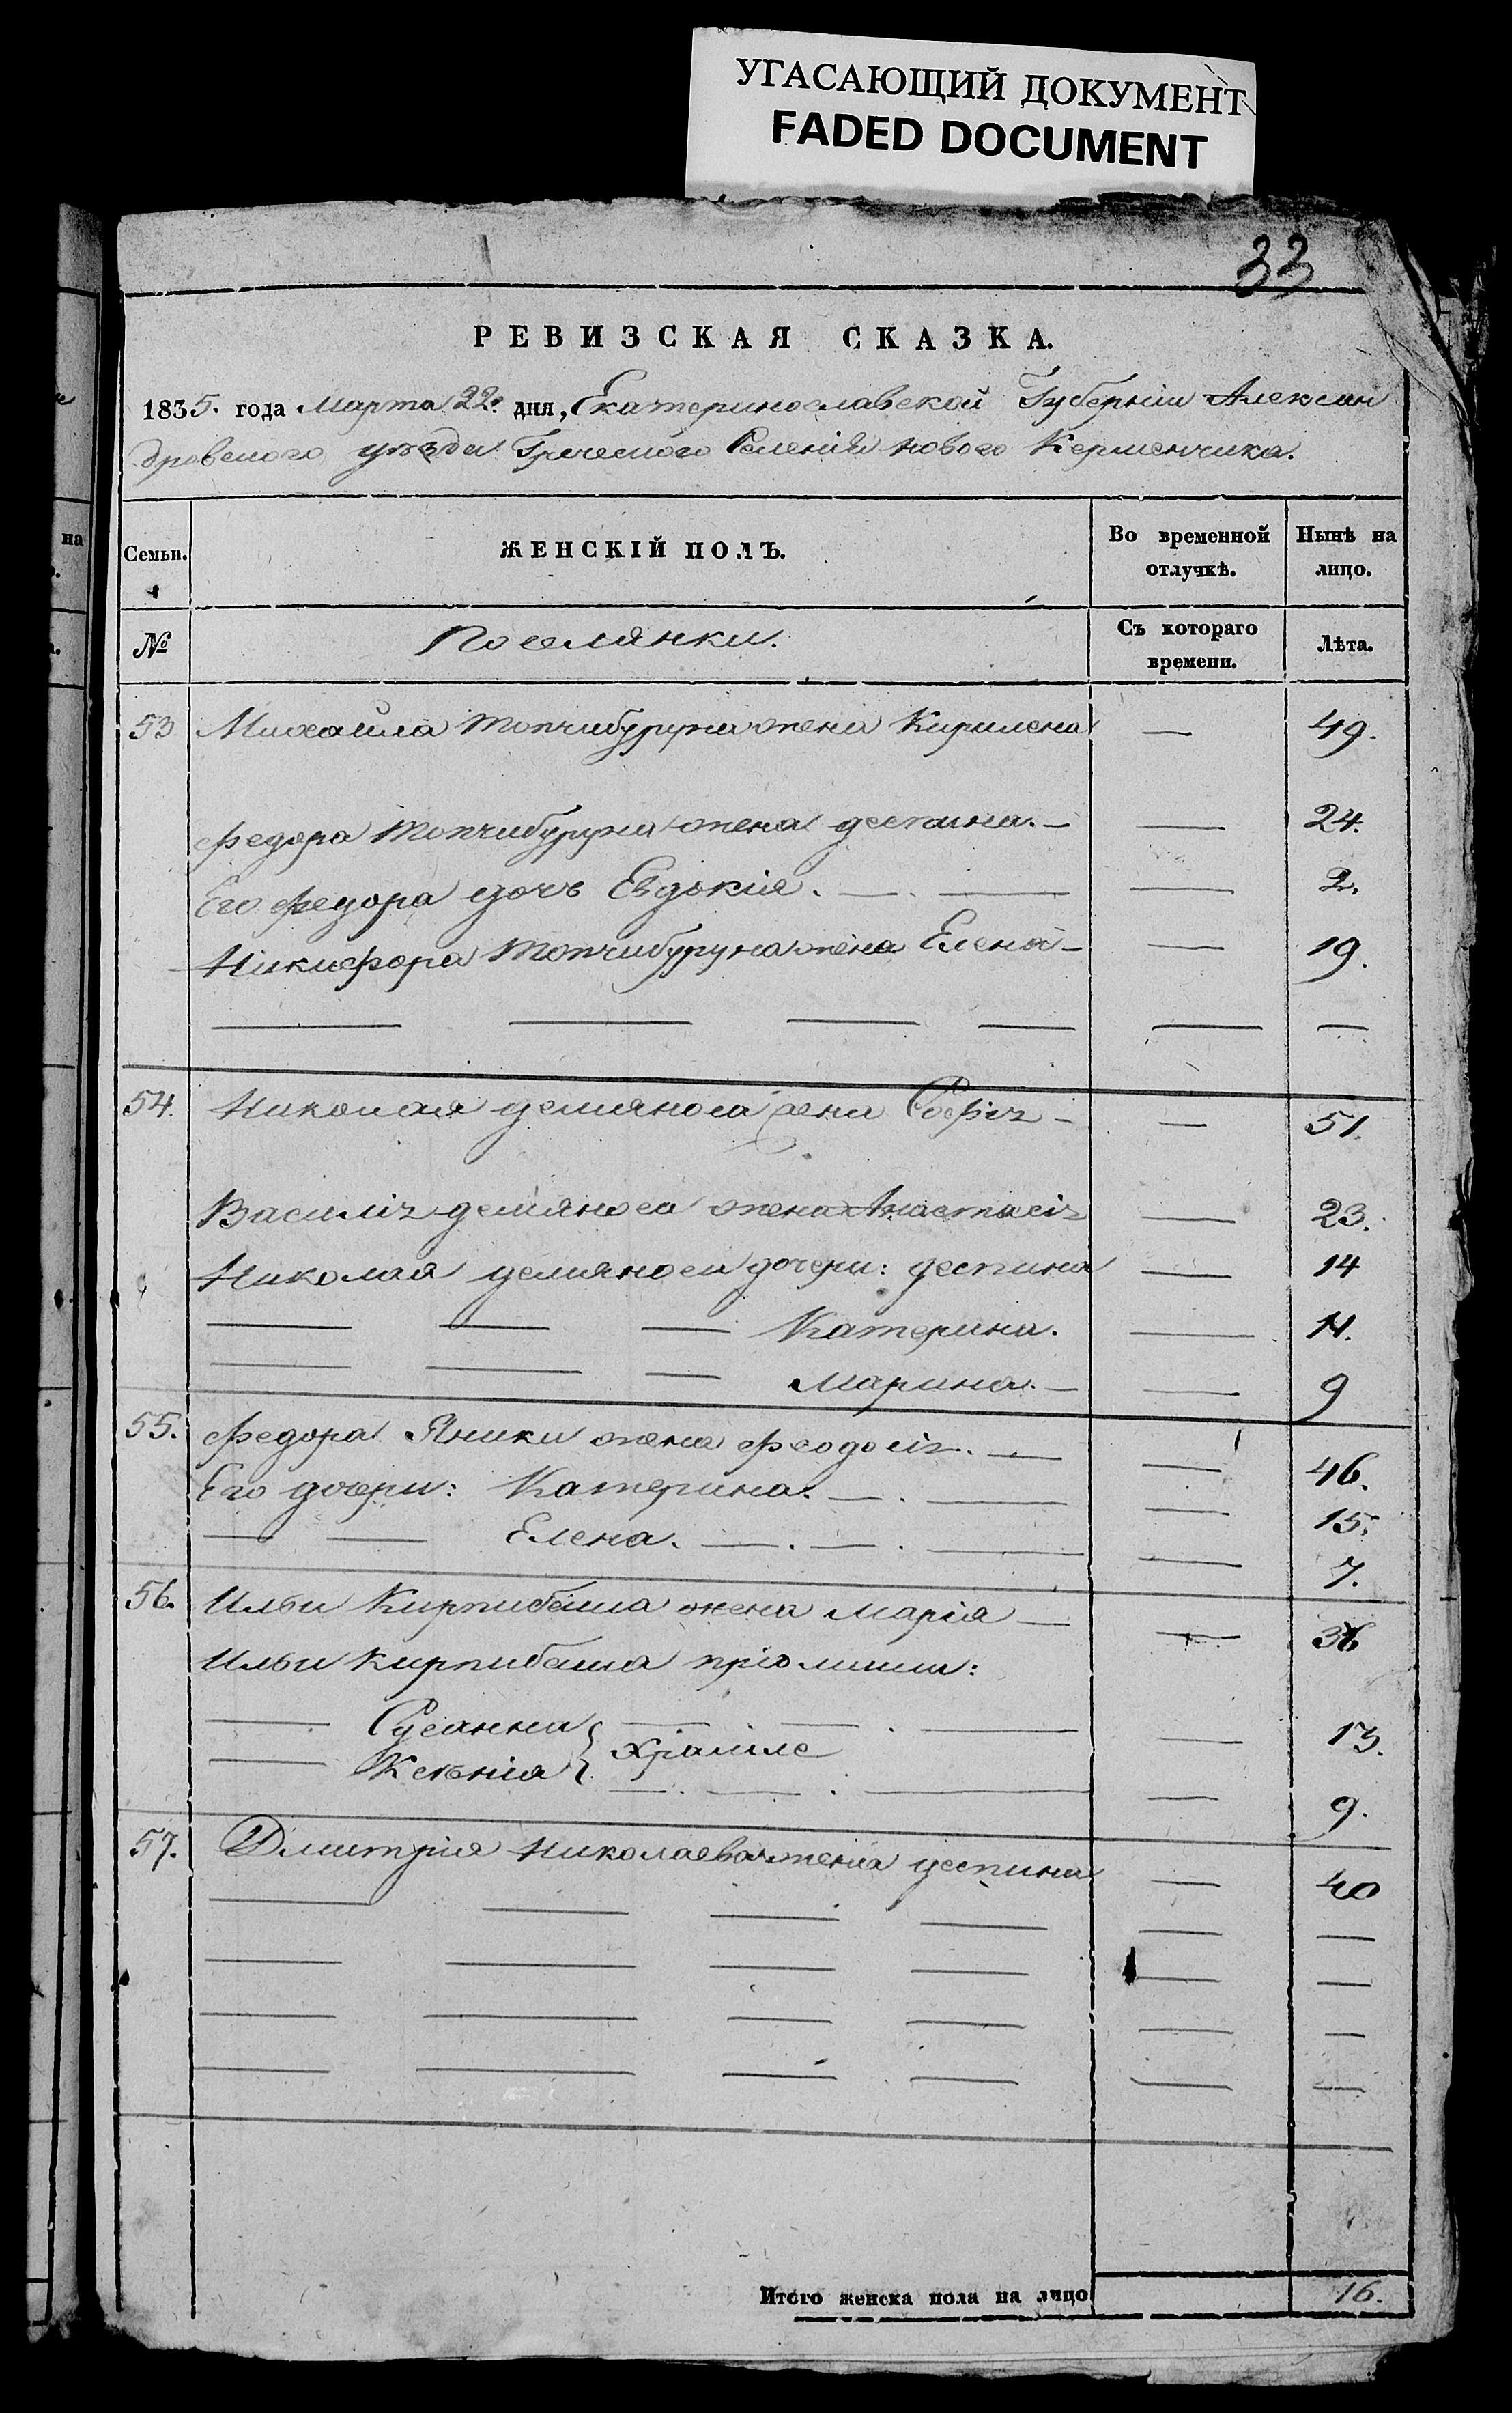 УГАСАЮЩИЙ ДОКУМЕНТ
FADED DOCUMENT
33
РЕВИЗСКАЯ СКАЗКА.
1835. года Марта 22. дня, Екатеринославской Губерніи Алексан
дровского уѣзда Греческого Селенія нового Керменчика.
Семьи. ЖЕНСКІЙ ПОЛЪ. Во временной отлучкѣ. Нынѣ на лицо.
№ Поселянки. Съ котораго времени. Лѣта.
53 Михайла Топчибуруна жена Кирилена — 49.
Федора Топчибуруна жена деспина. — — 24.
Его Федора дочь Евдокія. — . — — 2.
Никифора Топчибуруна жена Елена — — 19.
— — — — — —
54. Николая демяноса жена Софія — — 51.
Василія демяноса жена Анастасія — 23.
Николая демяноса дочери: деспина — 14
— — — Катерина. — 14.
— — — Марина. — — 9
55. Федора Яники жена Феодосія. — — 46.
Его дочери: Катерина. — . — — 15.
— — Елена. — . — . — — 7.
56. Ильи Кирпибаша жена Марія — — 36
Ильи Кирпибаша
— Сусанна — — . — — 13.
— Ксенія — . — . — — 9.
57. Дмитрія Николаева жена деспина — 40
— — — — — —
— — — — — —
— — — — — —
— — — — — —
Итого женска пола на лицо 16.